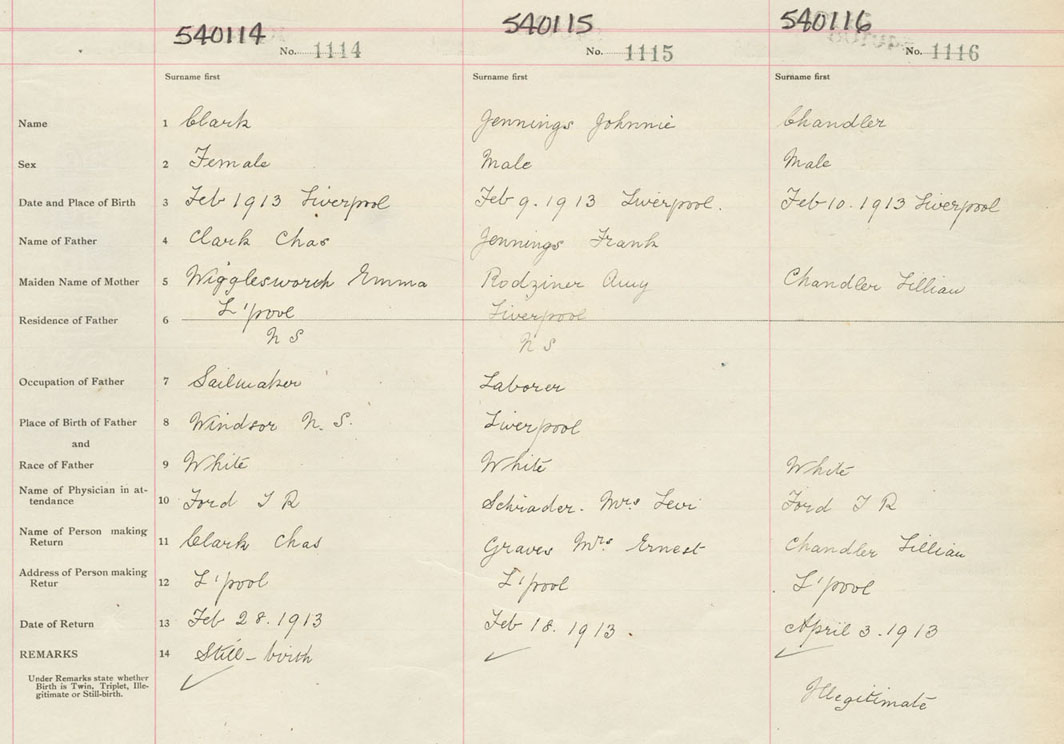 540114 540115 540116
No. 1114 No. 1115 No. 1116
Surname first Surname first Surname first
Name 1 Clark Jennings Johnnie Chandler
Sex 2 Female Male Male
Date and Place of Birth 3 Feb 1913 Liverpool Feb 9. 1913 Liverpool. Feb 10. 1913 Liverpool
Name of Father 4 Clark Chas Jennings Frank
Maiden Name of Mother 5 Wigglesworth Emma Rodziner Amy Chandler Lillian
L'pool Liverpool
Residence of Father 6
N S N S
Occupation of Father 7 Sailmaker Laborer
Place of Birth of Father 8 Windsor N. S. Liverpool
and
Race of Father 9 White White White
Name of Physician in at-
tendance 10 Ford T R Schrader. Mrs Levi Ford T R
Name of Person making
Return 11 Clark Chas Graves Mrs Ernest Chandler Lillian
Address of Person making
Retur 12 L'pool L'pool L'pool
Date of Return 13 Feb 28. 1913 Feb 18. 1913. April 3. 1913
REMARKS 14 Still-birth
Under Remarks state whether
Birth is Twin, Triplet, Ille-
gitimate or Still-birth. Illegitimate